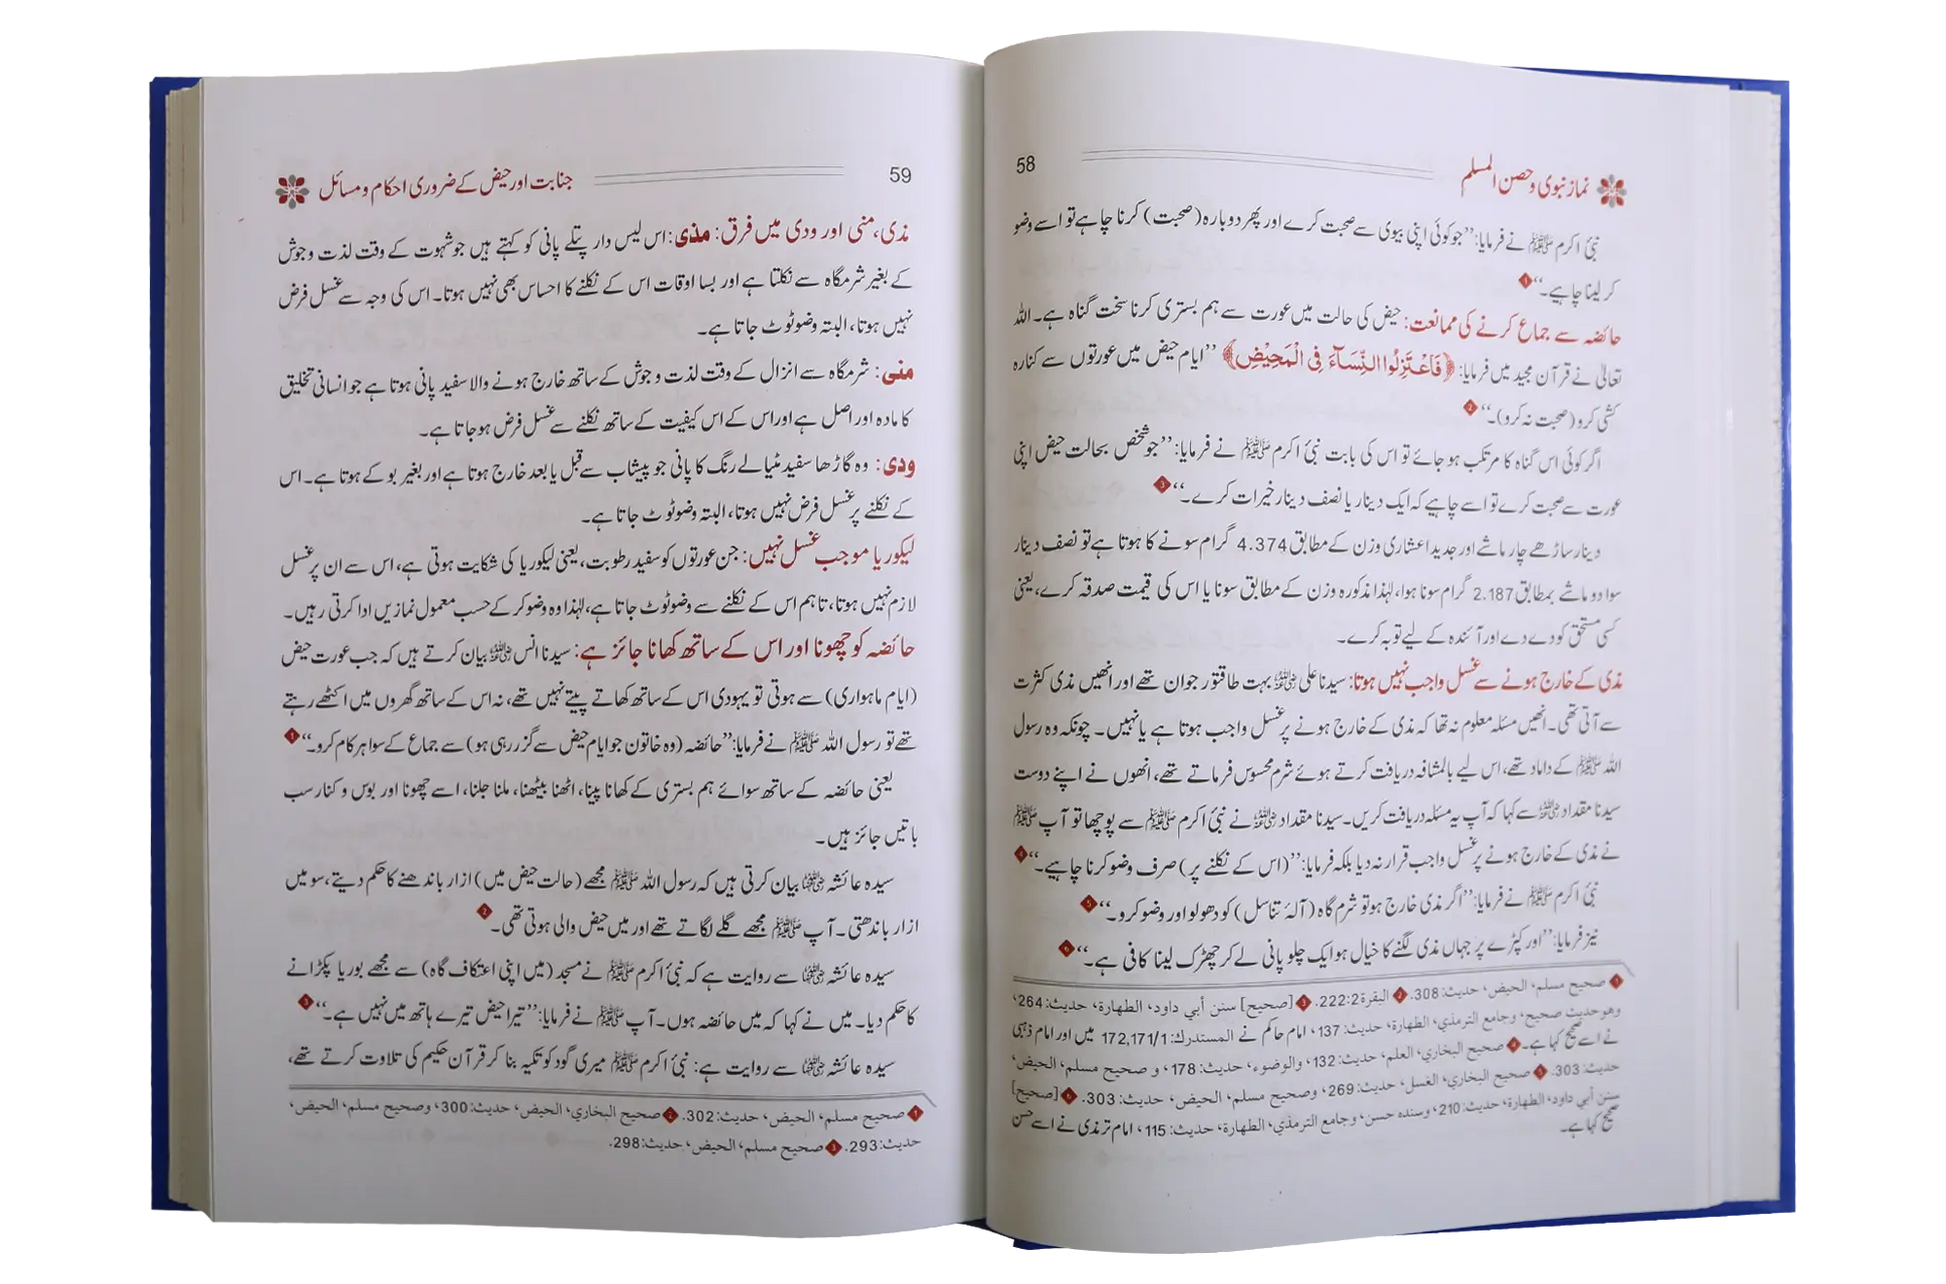 نماز نبوی و حصن المسلم
58
نبیٔ اکرم ﷺ نے فرمایا: ’’جو کوئی اپنی بیوی سے صحبت کرے اور پھر دوبارہ (صحبت) کرنا چاہے تو اسے وضو
کر لینا چاہیے۔‘‘ 1
حائضہ سے جماع کرنے کی ممانعت: حیض کی حالت میں عورت سے ہم بستری کرنا سخت گناہ ہے۔ اللہ
تعالیٰ نے قرآن مجید میں فرمایا: ﴿فَاعْتَزِلُوا النِّسَآءَ فِی الْمَحِیْضِ﴾ ’’ایام حیض میں عورتوں سے کنارہ
کشی کرو (صحبت نہ کرو)۔‘‘ 2
اگر کوئی اس گناہ کا مرتکب ہو جائے تو اس کی بابت نبیٔ اکرم ﷺ نے فرمایا: ’’جو شخص بحالت حیض اپنی
عورت سے صحبت کرے تو اسے چاہیے کہ ایک دینار یا نصف دینار خیرات کرے۔‘‘ 3
دینار ساڑھے چار ماشے اور جدید اعشاری وزن کے مطابق 4.374 گرام سونے کا ہوتا ہے تو نصف دینار
سوا دو ماشے بمطابق 2.187 گرام سونا ہوا، لہٰذا مذکورہ وزن کے مطابق سونا یا اس کی قیمت صدقہ کرے، یعنی
کسی مستحق کو دے دے اور آئندہ کے لیے توبہ کرے۔
مذی کے خارج ہونے سے غسل واجب نہیں ہوتا: سیدنا علی رضی اللہ عنہ بہت طاقتور جوان تھے اور انھیں مذی کثرت
سے آتی تھی۔ انھیں مسئلہ معلوم نہ تھا کہ مذی کے خارج ہونے پر غسل واجب ہوتا ہے یا نہیں۔ چونکہ وہ رسول
اللہ ﷺ کے داماد تھے، اس لیے بالمشافہ دریافت کرتے ہوئے شرم محسوس فرماتے تھے، انھوں نے اپنے دوست
سیدنا مقداد رضی اللہ عنہ سے کہا کہ آپ یہ مسئلہ دریافت کریں۔ سیدنا مقداد رضی اللہ عنہ نے نبیٔ اکرم ﷺ سے پوچھا تو آپ ﷺ
نے مذی کے خارج ہونے پر غسل واجب قرار نہ دیا بلکہ فرمایا: ’’(اس کے نکلنے پر) صرف وضو کرنا چاہیے۔‘‘ 4
نبیٔ اکرم ﷺ نے فرمایا: ’’اگر مذی خارج ہو تو شرم گاہ (آلۂ تناسل) کو دھو لو اور وضو کرو۔‘‘ 5
نیز فرمایا: ’’اور کپڑے پر جہاں مذی لگنے کا خیال ہو ایک چلو پانی لے کر چھڑک لینا کافی ہے۔‘‘ 6
1 صحیح مسلم، الحیض، حدیث: 308. 2 البقرة 222:2. 3 [صحیح] سنن أبي داود، الطهارة، حدیث: 264،
وهو حدیث صحیح، وجامع الترمذي، الطهارة، حدیث: 137، امام حاکم نے المستدرك: 172,171/1 میں اور امام ذہبی
نے اسے صحیح کہا ہے۔ 4 صحیح البخاري، العلم، حدیث: 132، والوضوء، حدیث: 178، و صحیح مسلم، الحیض،
حدیث: 303. 5 صحیح البخاري، الغسل، حدیث: 269، وصحیح مسلم، الحیض، حدیث: 303. 6 [صحیح]
سنن أبي داود، الطهارة، حدیث: 210، وسنده حسن، وجامع الترمذي، الطهارة، حدیث: 115، امام ترمذی نے اسے حسن
صحیح کہا ہے۔
جنابت اور حیض کے ضروری احکام و مسائل
59
مذی، منی اور ودی میں فرق: مذی: اس لیس دار پتلے پانی کو کہتے ہیں جو شہوت کے وقت لذت و جوش
کے بغیر شرمگاہ سے نکلتا ہے اور بسا اوقات اس کے نکلنے کا احساس بھی نہیں ہوتا۔ اس کی وجہ سے غسل فرض
نہیں ہوتا، البتہ وضو ٹوٹ جاتا ہے۔
منی: شرمگاہ سے انزال کے وقت لذت و جوش کے ساتھ خارج ہونے والا سفید پانی ہوتا ہے جو انسانی تخلیق
کا مادہ اور اصل ہے اور اس کے اس کیفیت کے ساتھ نکلنے سے غسل فرض ہو جاتا ہے۔
ودی: وہ گاڑھا سفید مٹیالے رنگ کا پانی جو پیشاب سے قبل یا بعد خارج ہوتا ہے اور بغیر بو کے ہوتا ہے۔ اس
کے نکلنے پر غسل فرض نہیں ہوتا، البتہ وضو ٹوٹ جاتا ہے۔
لیکوریا موجب غسل نہیں: جن عورتوں کو سفید رطوبت، یعنی لیکوریا کی شکایت ہوتی ہے، اس سے ان پر غسل
لازم نہیں ہوتا، تاہم اس کے نکلنے سے وضو ٹوٹ جاتا ہے، لہٰذا وہ وضو کر کے حسب معمول نمازیں ادا کرتی رہیں۔
حائضہ کو چھونا اور اس کے ساتھ کھانا جائز ہے: سیدنا انس رضی اللہ عنہ بیان کرتے ہیں کہ جب عورت حیض
(ایام ماہواری) سے ہوتی تو یہودی اس کے ساتھ کھاتے پیتے نہیں تھے، نہ اس کے ساتھ گھروں میں اکٹھے رہتے
تھے تو رسول اللہ ﷺ نے فرمایا: ’’حائضہ (وہ خاتون جو ایام حیض سے گزر رہی ہو) سے جماع کے سوا ہر کام کرو۔‘‘ 1
یعنی حائضہ کے ساتھ سوائے ہم بستری کے کھانا پینا، اٹھنا بیٹھنا، ملنا جلنا، اسے چھونا اور بوس و کنار سب
باتیں جائز ہیں۔
سیدہ عائشہ رضی اللہ عنہا بیان کرتی ہیں کہ رسول اللہ ﷺ مجھے (حالت حیض میں) ازار باندھنے کا حکم دیتے، سو میں
ازار باندھتی۔ آپ ﷺ مجھے گلے لگاتے تھے اور میں حیض والی ہوتی تھی۔ 2
سیدہ عائشہ رضی اللہ عنہا سے روایت ہے کہ نبیٔ اکرم ﷺ نے مسجد (میں اپنی اعتکاف گاہ) سے مجھے بوریا پکڑانے
کا حکم دیا۔ میں نے کہا کہ میں حائضہ ہوں۔ آپ ﷺ نے فرمایا: ’’تیرا حیض تیرے ہاتھ میں نہیں ہے۔‘‘ 3
سیدہ عائشہ رضی اللہ عنہا سے روایت ہے: نبیٔ اکرم ﷺ میری گود کو تکیہ بنا کر قرآن حکیم کی تلاوت کرتے تھے،
1 صحیح مسلم، الحیض، حدیث: 302. 2 صحیح البخاري، الحیض، حدیث: 300، وصحیح مسلم، الحیض،
حدیث: 293. 3 صحیح مسلم، الحیض، حدیث: 298.